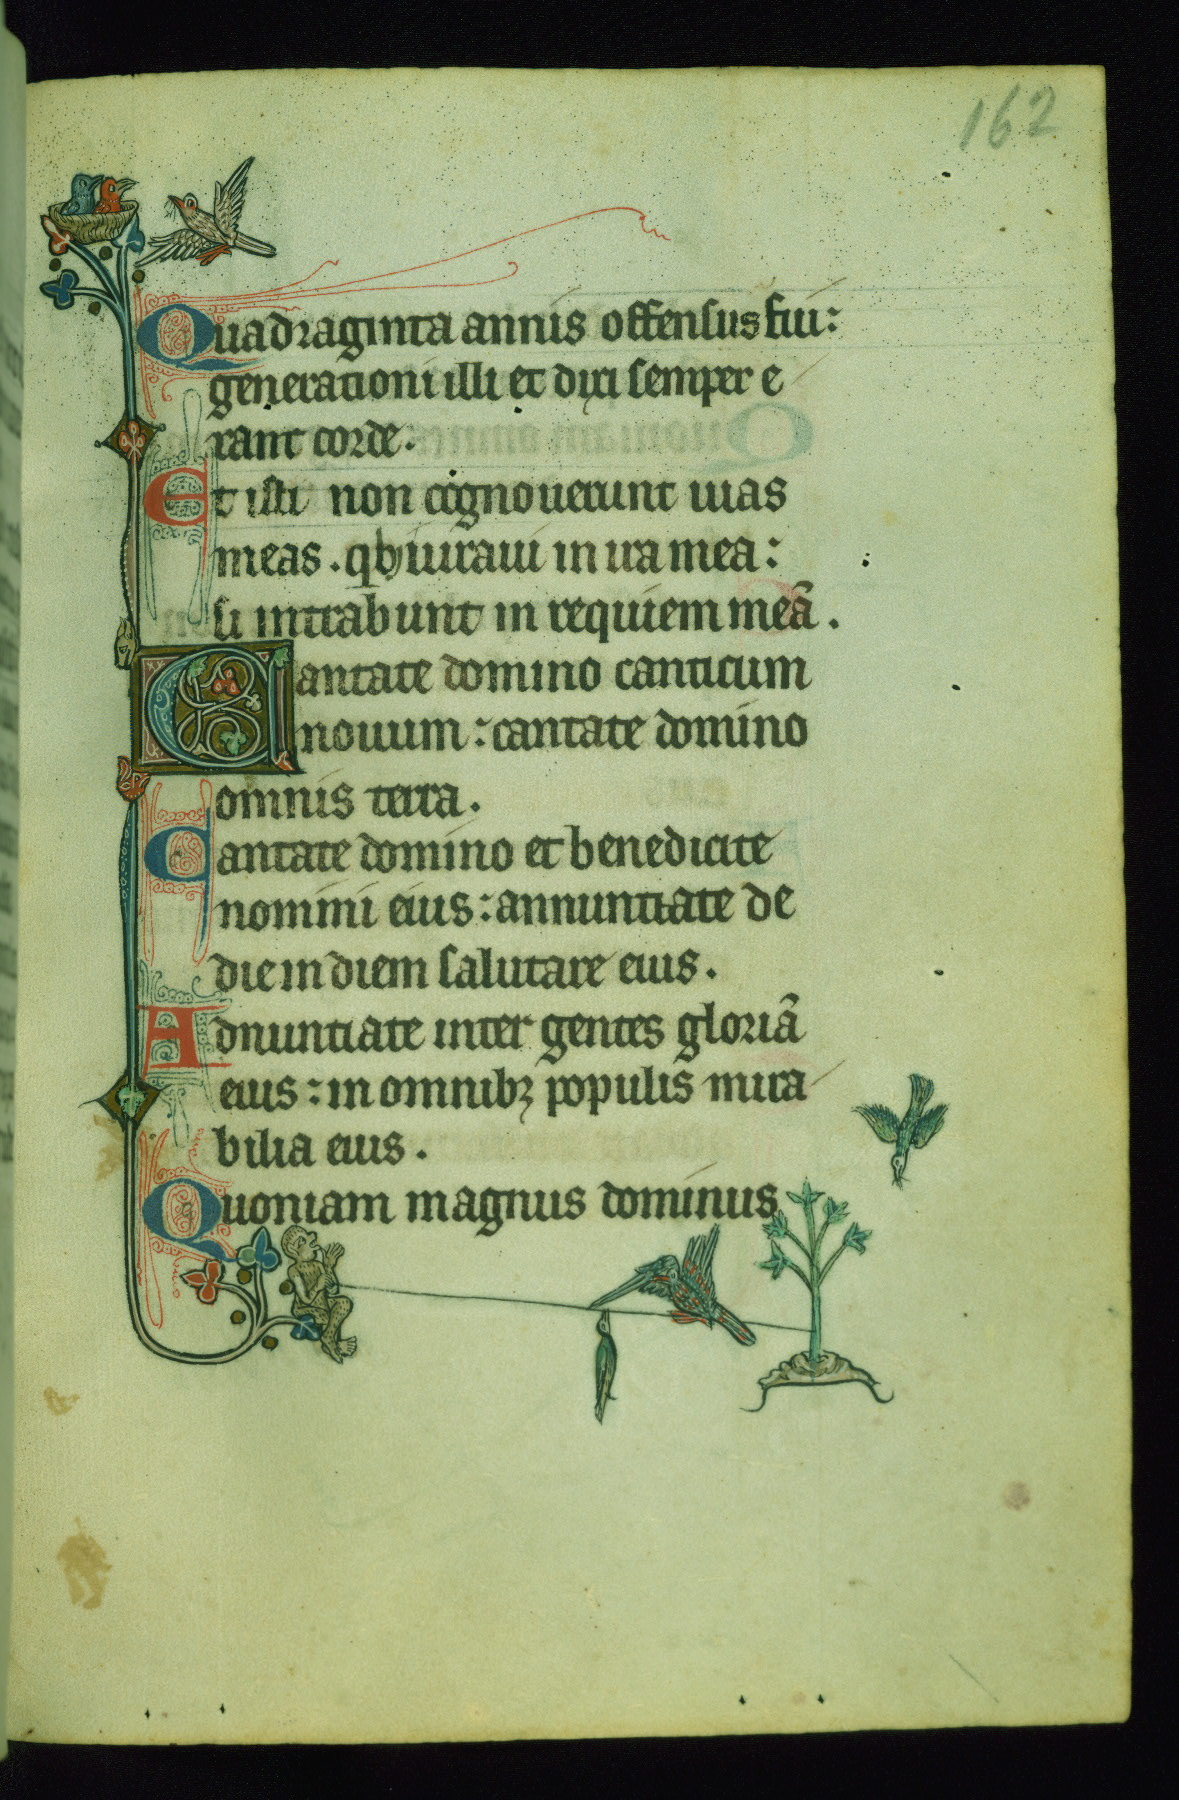 162
Quadraginta annis offensus fui:
generationi illi et dixi semper e
rant corde.
Et isti non cognoverunt uias
meas. qb iuraui in ira mea:
si intrabunt in requiem meā.
Cantate domino canticum
nouum: cantate domino
omnis terra.
Cantate domino et benedicite
nomini eius: annuntiate de
die in diem salutare eius.
Adnuntiate inter gentes gloriā
eius: in omnibꝫ populis mira
bilia eius.
Quoniam magnus dominus